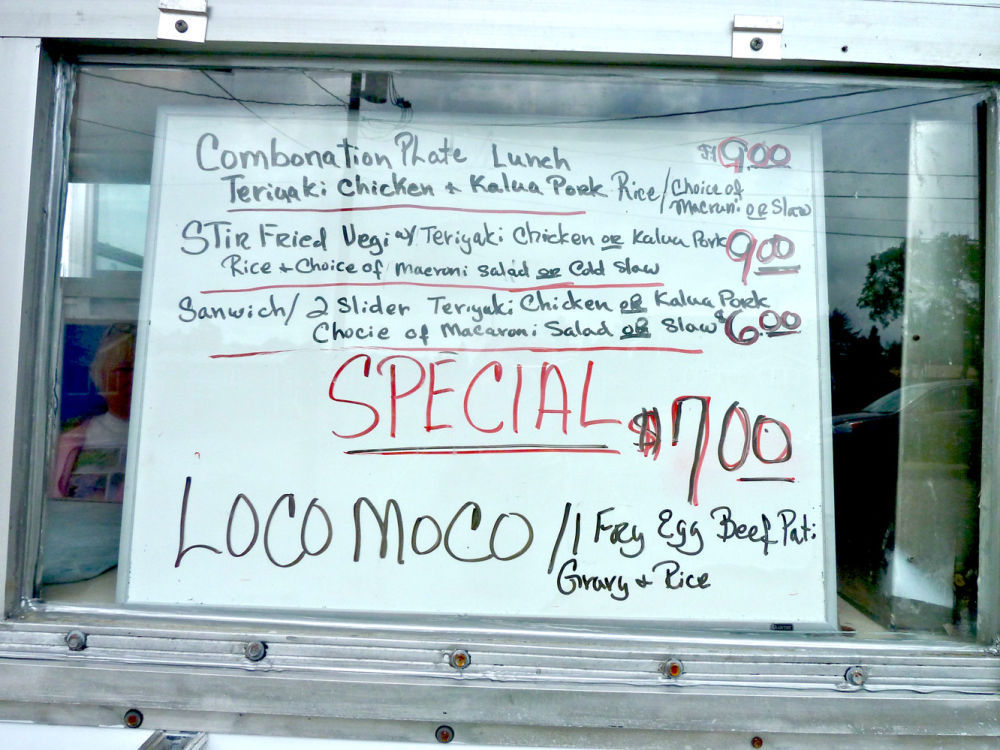 Combonation Plate Lunch $9.00
Teriyaki Chicken & Kalua Pork Rice/Choice of
Macruni or Slaw
STir Fried Vegi w/ Teriyaki Chicken or Kalua Pork 9.00
Rice & Choice of macroni Salad or Cold Slaw
Sanwich/ 2 Slider Teriyaki Chicken or Kalua Pork
Chocie of Macaroni Salad or Slaw $6.00
SPECIAL $7.00
LOCO MOCO /1 Fry Egg Beef Pati
Gravy & Rice